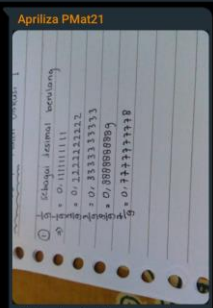 Apriliza PMat21
① sebagai desimal berulang
a) 1/9 = 0,1111111111
2/9 = 0,2222222222
3/9 = 0,3333333333
8/9 = 0,8888888889
7/9 = 0,7777777778